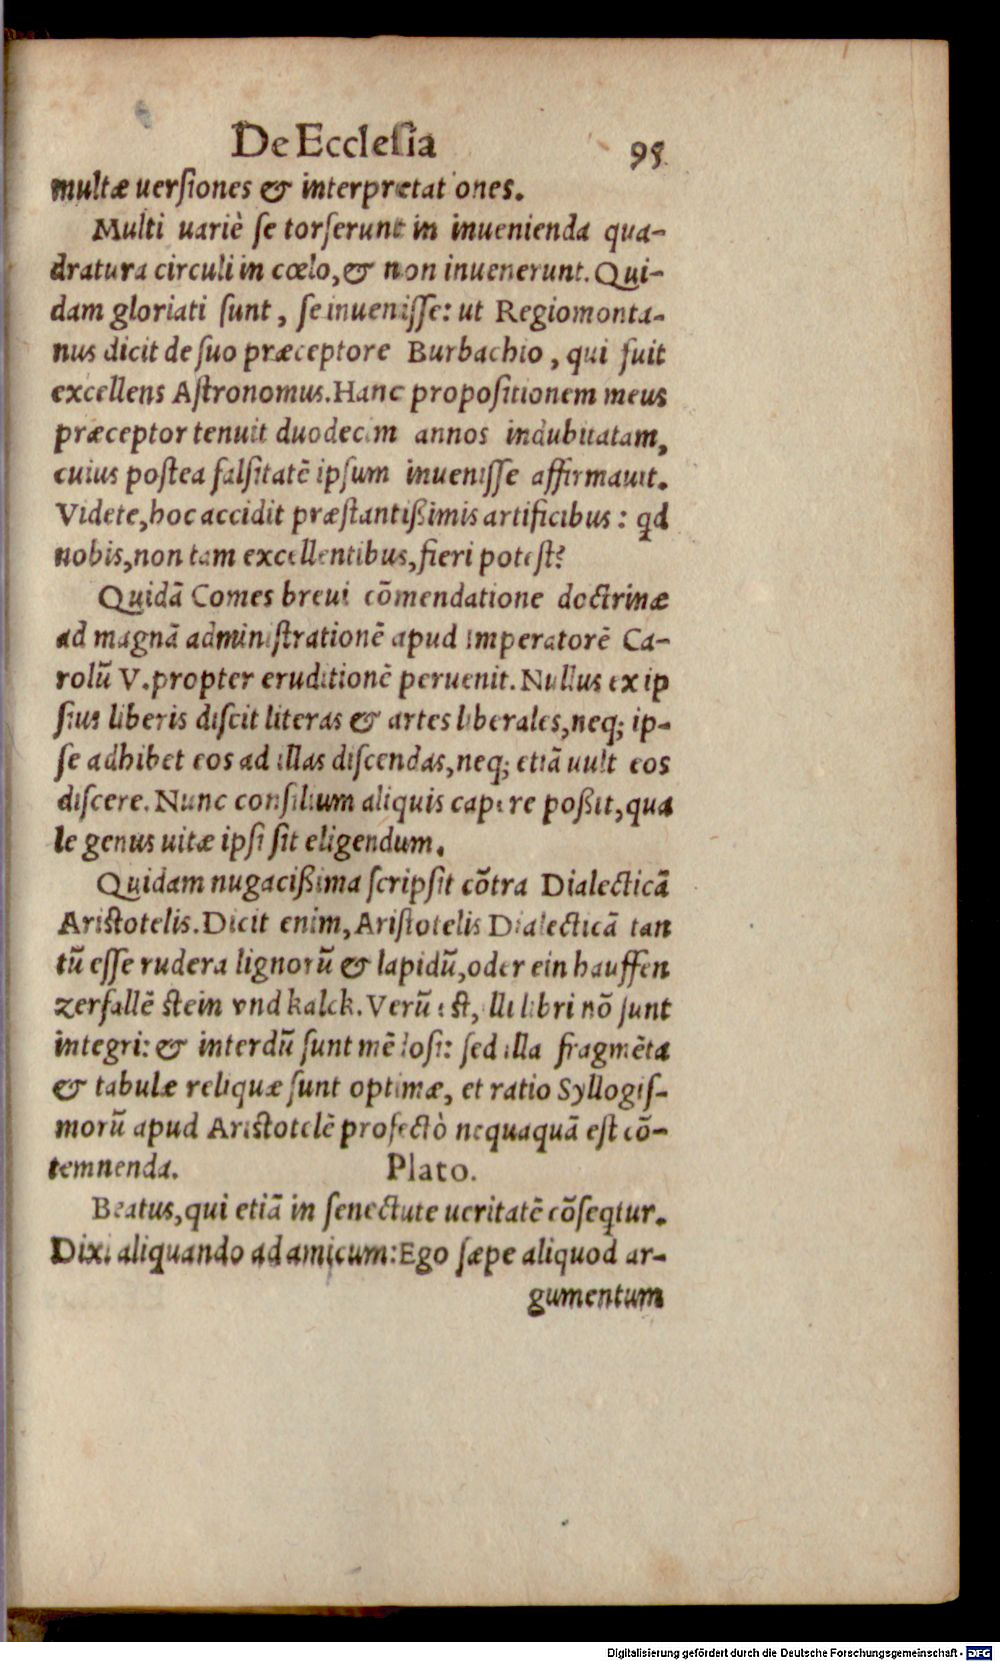 De Ecclesia 95
multæ uersiones & interpretationes.
Multi uariè se torserunt in inuenienda qua-
dratura circuli in cœlo, & non inuenerunt. Qui-
dam gloriati sunt, se inuenisse: ut Regiomonta-
nus dicit de suo præceptore Burbachio, qui fuit
excellens Astronomus. Hanc propositionem meus
præceptor tenuit duodecim annos indubitatam,
cuius postea falsitatē ipsum inuenisse affirmauit.
Videte, hoc accidit præstantißimis artificibus: qd
nobis, non tam excellentibus, fieri potest?
Quidā Comes breui cōmendatione doctrinæ
ad magnā administrationē apud Imperatorē Ca-
rolū V. propter eruditionē peruenit. Nullus ex ip
sius liberis discit literas & artes liberales, neq; ip-
se adhibet eos ad illas discendas, neq; etiā uult eos
discere. Nunc consilium aliquis capere poßit, qua
le genus uitæ ipsi sit eligendum.
Quidam nugacißima scripsit cōtra Dialecticā
Aristotelis. Dicit enim, Aristotelis Dialecticā tan
tū esse rudera lignorū & lapidū, oder ein hauffen
zerfallē stein vnd kalck. Verū est, illi libri nō sunt
integri: & interdū sunt mēdosi: sed illa fragmēta
& tabulæ reliquæ sunt optimæ, et ratio Syllogis-
morū apud Aristotelē profectò nequaquā est cō-
temnenda. Plato.
Beatus, qui etiā in senectute ueritatē cōseqtur.
Dixi aliquando ad amicum: Ego sæpe aliquod ar-
gumentum
Digitalisierung gefördert durch die Deutsche Forschungsgemeinschaft - DFG